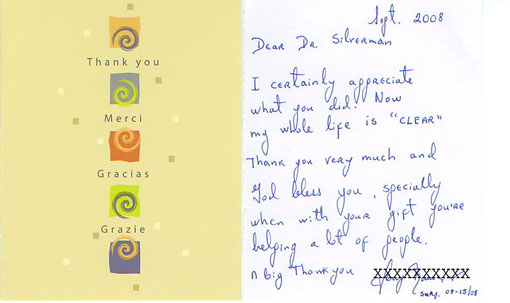 Thank you
Merci
Gracias
Grazie
Sept. 2008
Dear Dr. Silverman
I certainly appreciate
what you did. Now
my whole life is "CLEAR"
Thank you very much and
God bless you, specially
when with your gift you're
helping a lot of people.
A Big Thank you XXXXXXXXXX
surg. 08-15/08